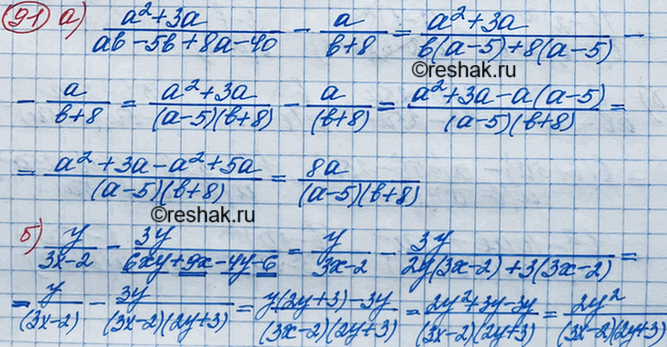 91 а) (a² + 3a)/(ab - 5b + 8a - 40) - a/(b + 8) = (a² + 3a)/(b(a - 5) + 8(a - 5)) -
©reshak.ru
- a/(b + 8) = (a² + 3a)/((a - 5)(b + 8)) - a/((b + 8)) = (a² + 3a - a(a - 5))/((a - 5)(b + 8)) =
= (a² + 3a - a² + 5a)/((a - 5)(b + 8)) = 8a/((a - 5)(b + 8))
©reshak.ru
б) y/(3x - 2) - 3y/(6xy + 9x - 4y - 6) = y/(3x - 2) - 3y/(2y(3x - 2) + 3(3x - 2)) =
= y/((3x - 2)) - 3y/((3x - 2)(2y + 3)) = (y(2y + 3) - 3y)/((3x - 2)(2y + 3)) = (2y² + 3y - 3y)/((3x - 2)(2y + 3)) = 2y²/((3x - 2)(2y + 3))